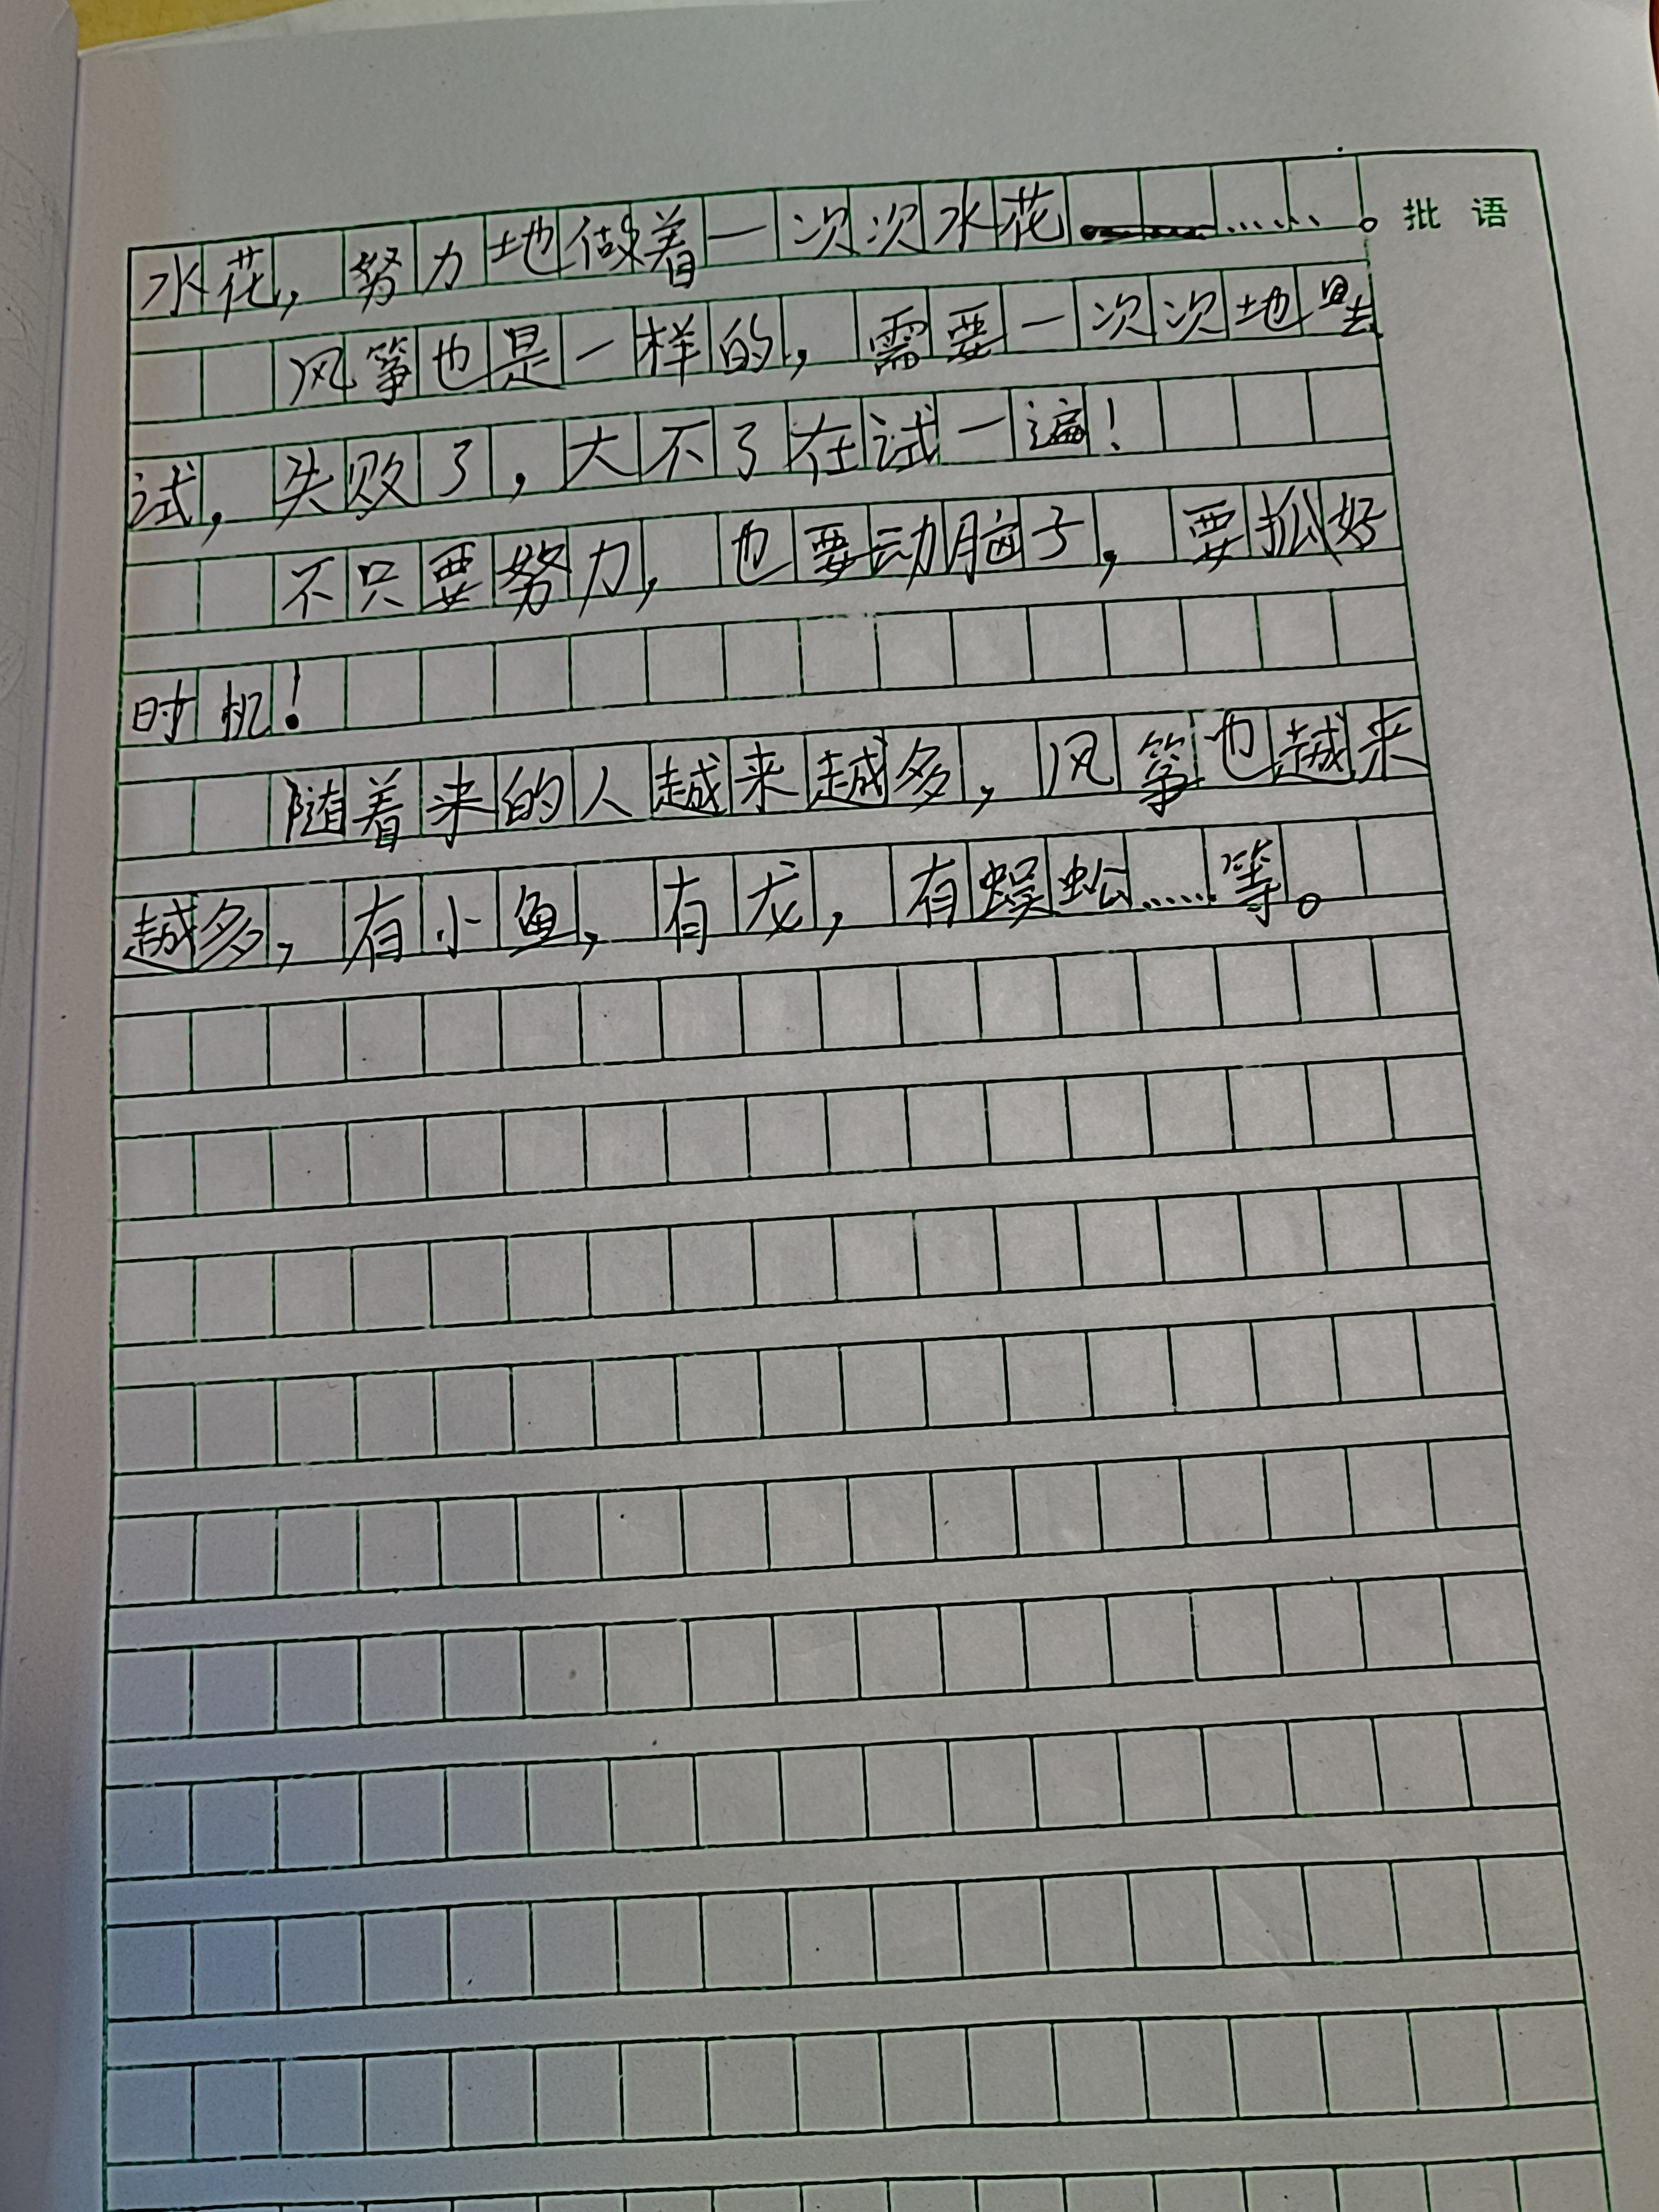 水花，努力地做着一次次水花……。
批语
风筝也是一样的，需要一次次地
试，失败了，大不了在试一遍！
不只要努力，也要动脑子，要狐好
时机！
随着来的人越来越多，风筝也越来
越多，有小鱼，有龙，有蜈蚣……等。